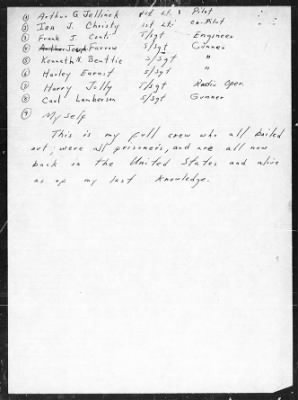 ① Arthur G. Jellinek 1st Lt. Pilot
② Ira J. Christy 1st Lt. co-Pilot
③ Frank J. Conti T/sgt Engineer
④ Farrow S/sgt Gunner
⑤ Kenneth N. Beattie S/Sgt "
⑥ Harley Earnst S/sgt "
⑦ Harry Jolly T/sgt Radio Oper.
⑧ Carl Lamberson S/sgt Gunner
⑨ My self
This is my full crew who all bailed
out; were all prisoners, and are all now
back in the United States and alive
as of my last knowledge.